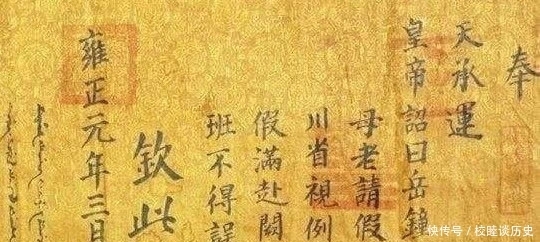 奉
天承運
皇帝詔曰岳鍾
母老請假
川省視例
假滿赴闕
班不得誤
欽此
雍正元年三月
快传号 / 校睦谈历史